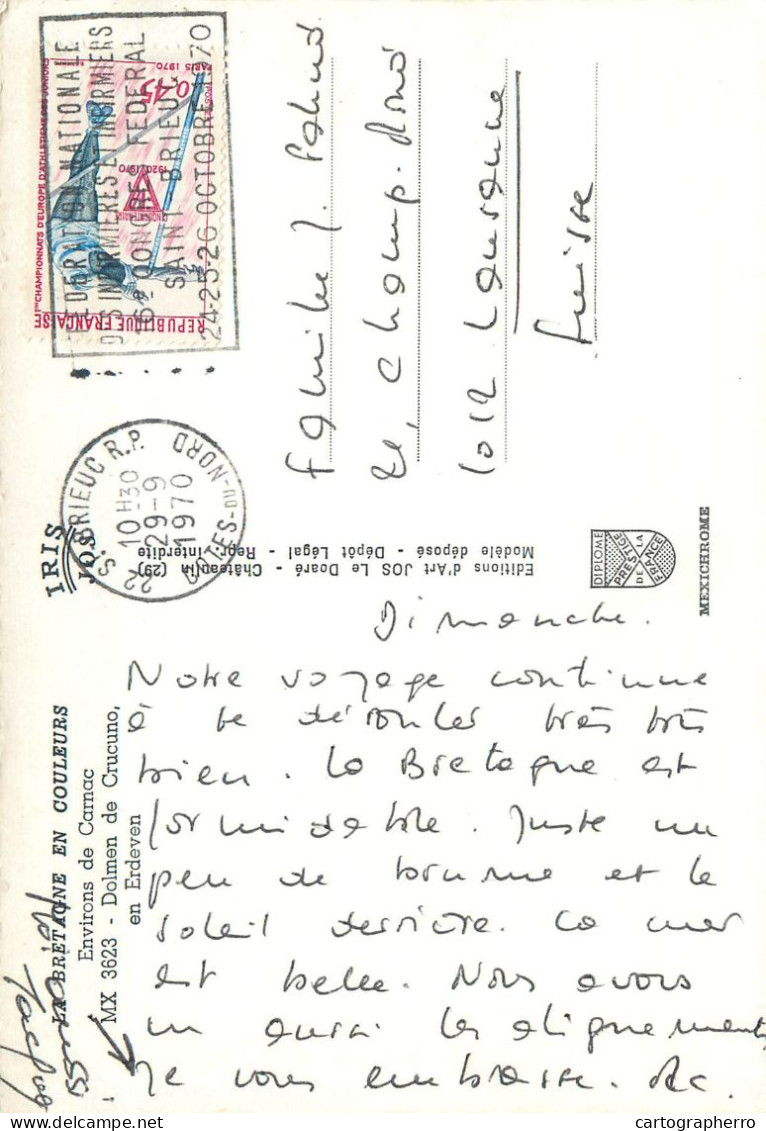 LA BRETAGNE EN COULEURS
Environs de Carnac
MX 3623 - Dolmen de Crucuno,
en Erdeven
IRIS
JOS
Editions d'Art JOS Le Doaré - Châteaulin (29)
Modèle déposé - Dépôt Légal - Repr. interdite
DIPLOME
PRESTIGE
DE LA
FRANCE
MEXICHROME
FEDERATION NATIONALE
DES INFIRMIERES ET INFIRMIERS
CONGRES FEDERAL
SAINT BRIEUC
24-25-26 OCTOBRE 1970
1ers CHAMPIONNATS D'EUROPE D'ATHLETISME DES JUNIORS
PARIS 1970
0,45
1920/1970
REPUBLIQUE FRANÇAISE
22 ST BRIEUC R.P.
10H30
29-9
1970
COTES-DU-NORD
Famille J.
1012 Lausanne
Suisse
Dimanche.
Notre voyage continue
à se dérouler très très
bien. La Bretagne est
formidable. Juste un
peu de brume et le
soleil derrière. La mer
est belle. Nous avons
vu aussi les alignements
Je vous embrasse.
cartographerro